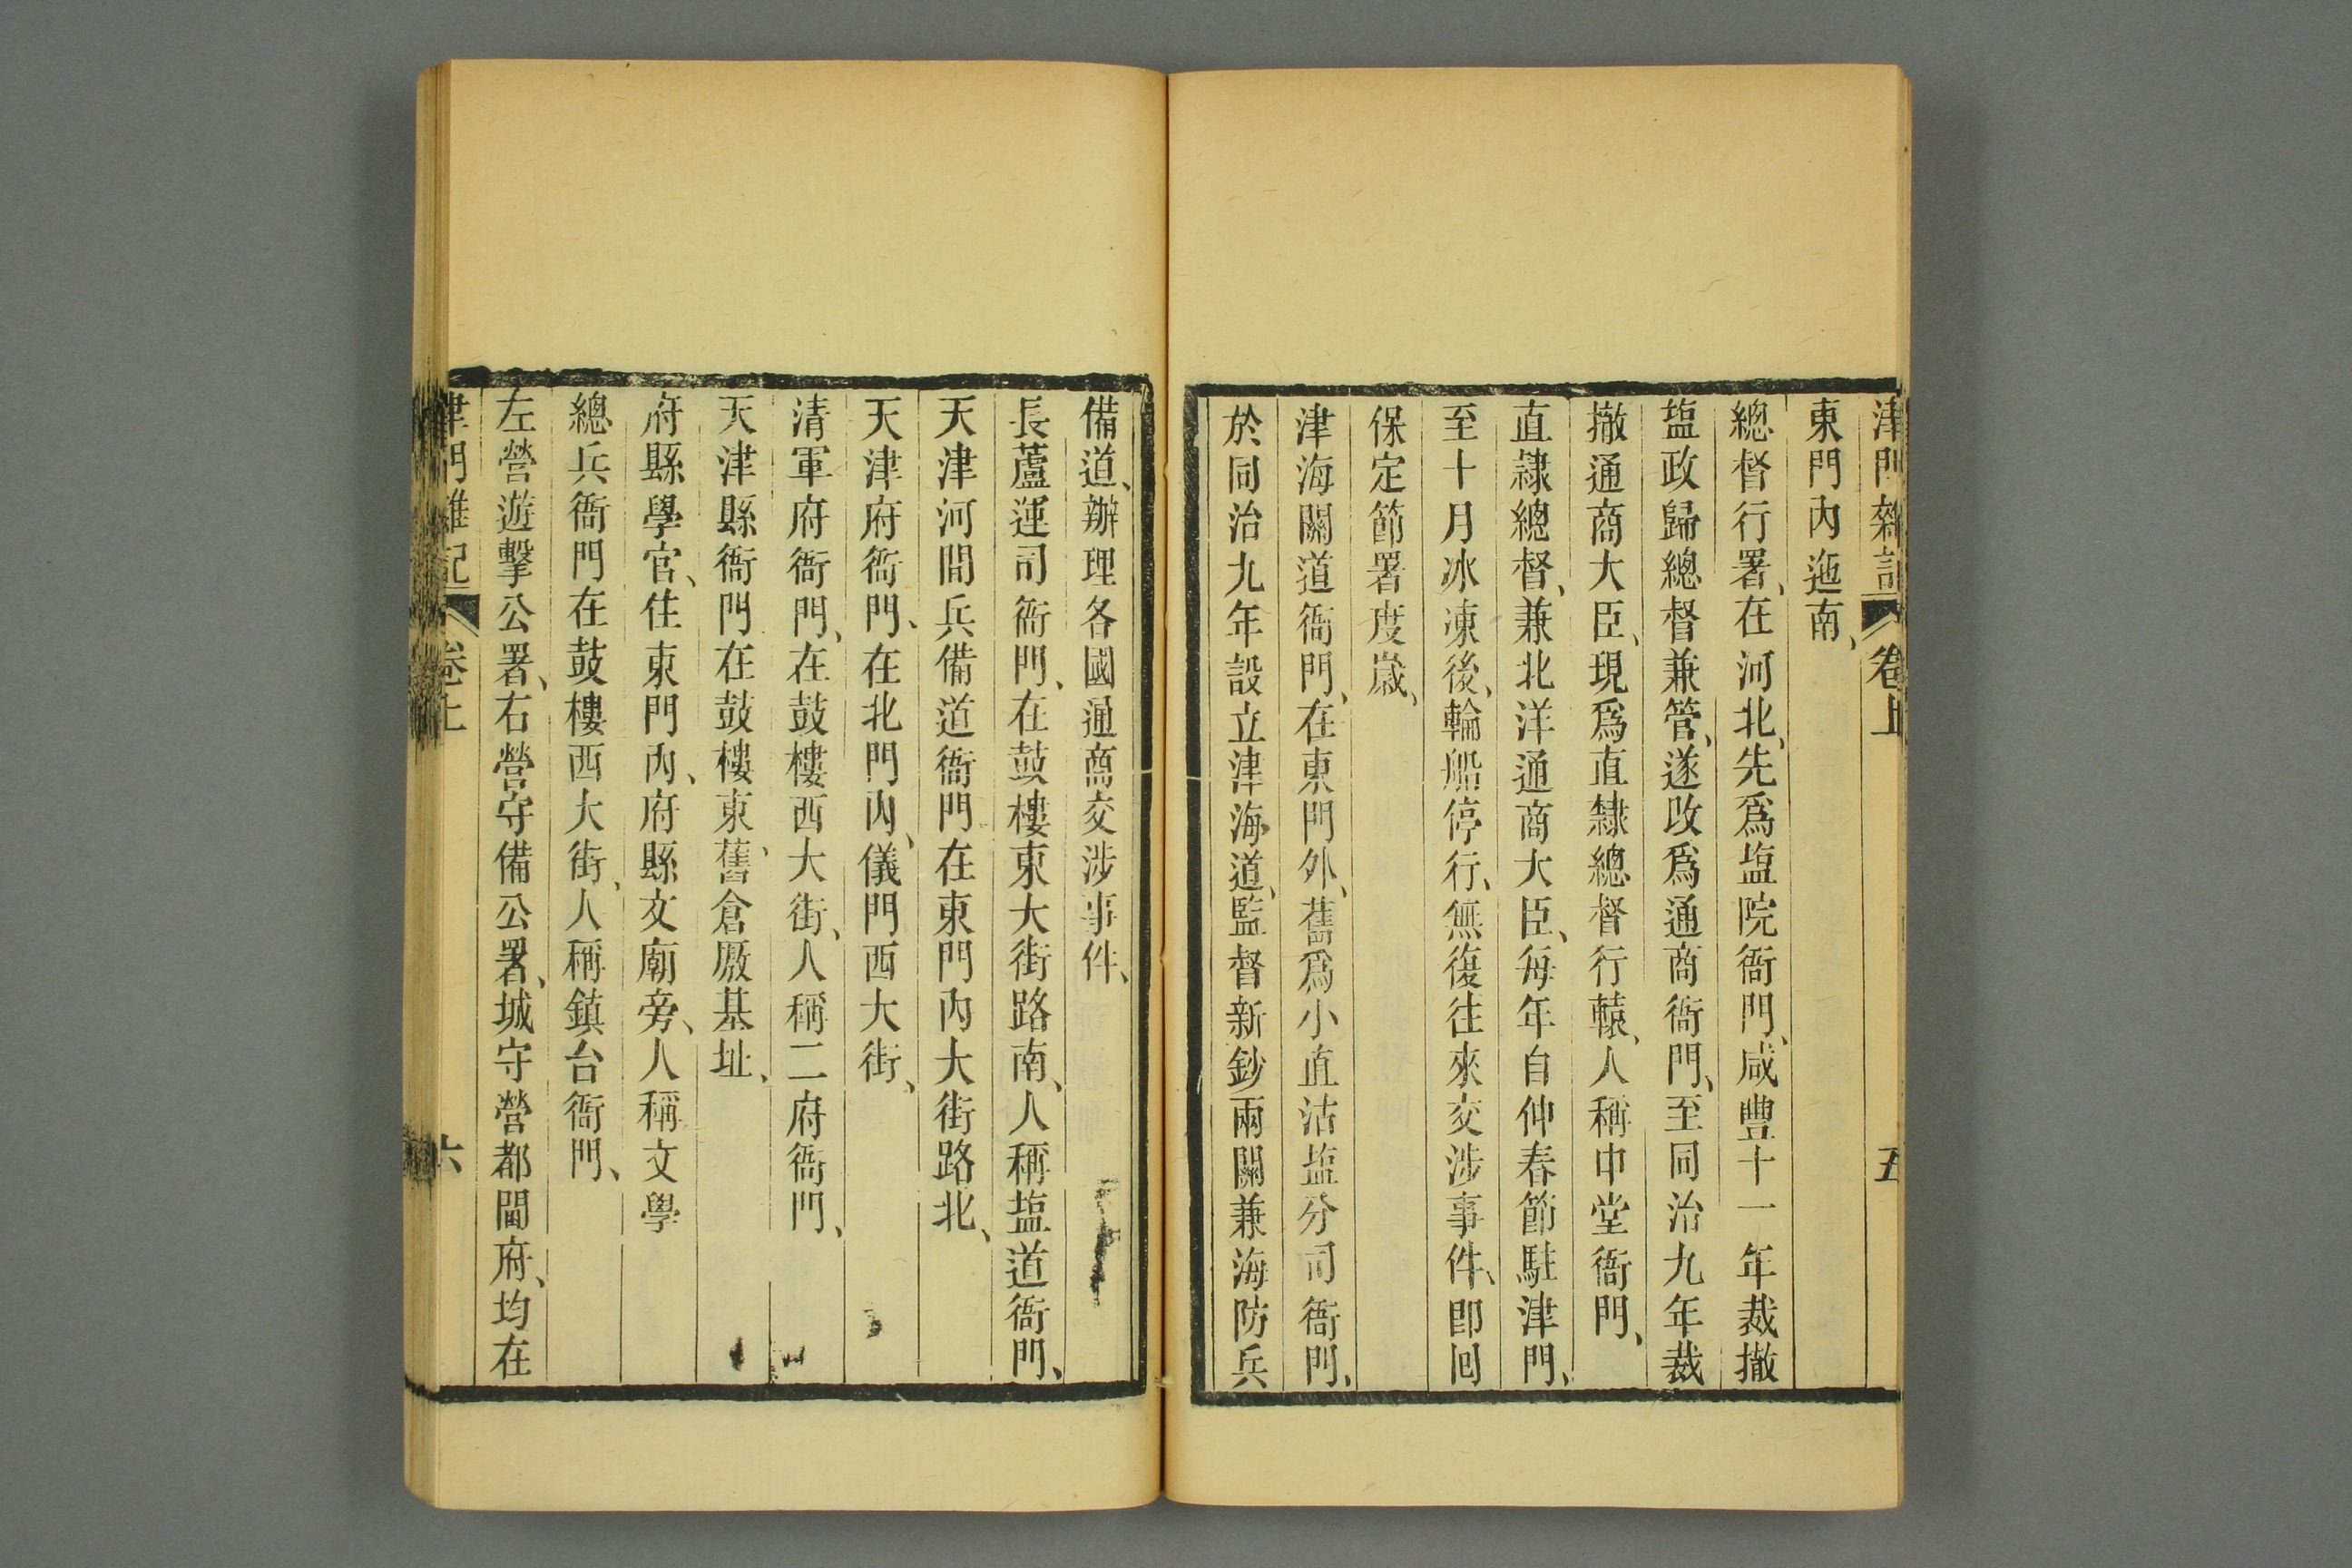 津門雜記 卷上 五
東門內迤南、
總督行署、在河北、先爲塩院衙門、咸豐十一年裁撤
塩政歸總督兼管、遂改爲通商衙門、至同治九年裁
撤通商大臣、現爲直隸總督行轅、人稱中堂衙門、
直隸總督、兼北洋通商大臣、每年自仲春節駐津門、
至十月冰凍後、輪船停行、無復往來交涉事件、即回
保定節署度歲、
津海關道衙門、在東門外、舊爲小直沽塩分司衙門、
於同治九年設立津海道、監督新鈔兩關兼海防兵
備道、辦理各國通商交涉事件、
長蘆運司衙門、在鼓樓東大街路南、人稱塩道衙門、
天津河間兵備道衙門在東門內大街路北、
天津府衙門、在北門內、儀門西大街、
清軍府衙門、在鼓樓西大街、人稱二府衙門、
天津縣衙門在鼓樓東、舊倉廒基址、
府縣學官、住東門內、府縣文廟旁、人稱文學
總兵衙門在鼓樓西大街、人稱鎮台衙門、
左營遊擊公署、右營守備公署、城守營都閫府、均在
津門雜記 卷上 六